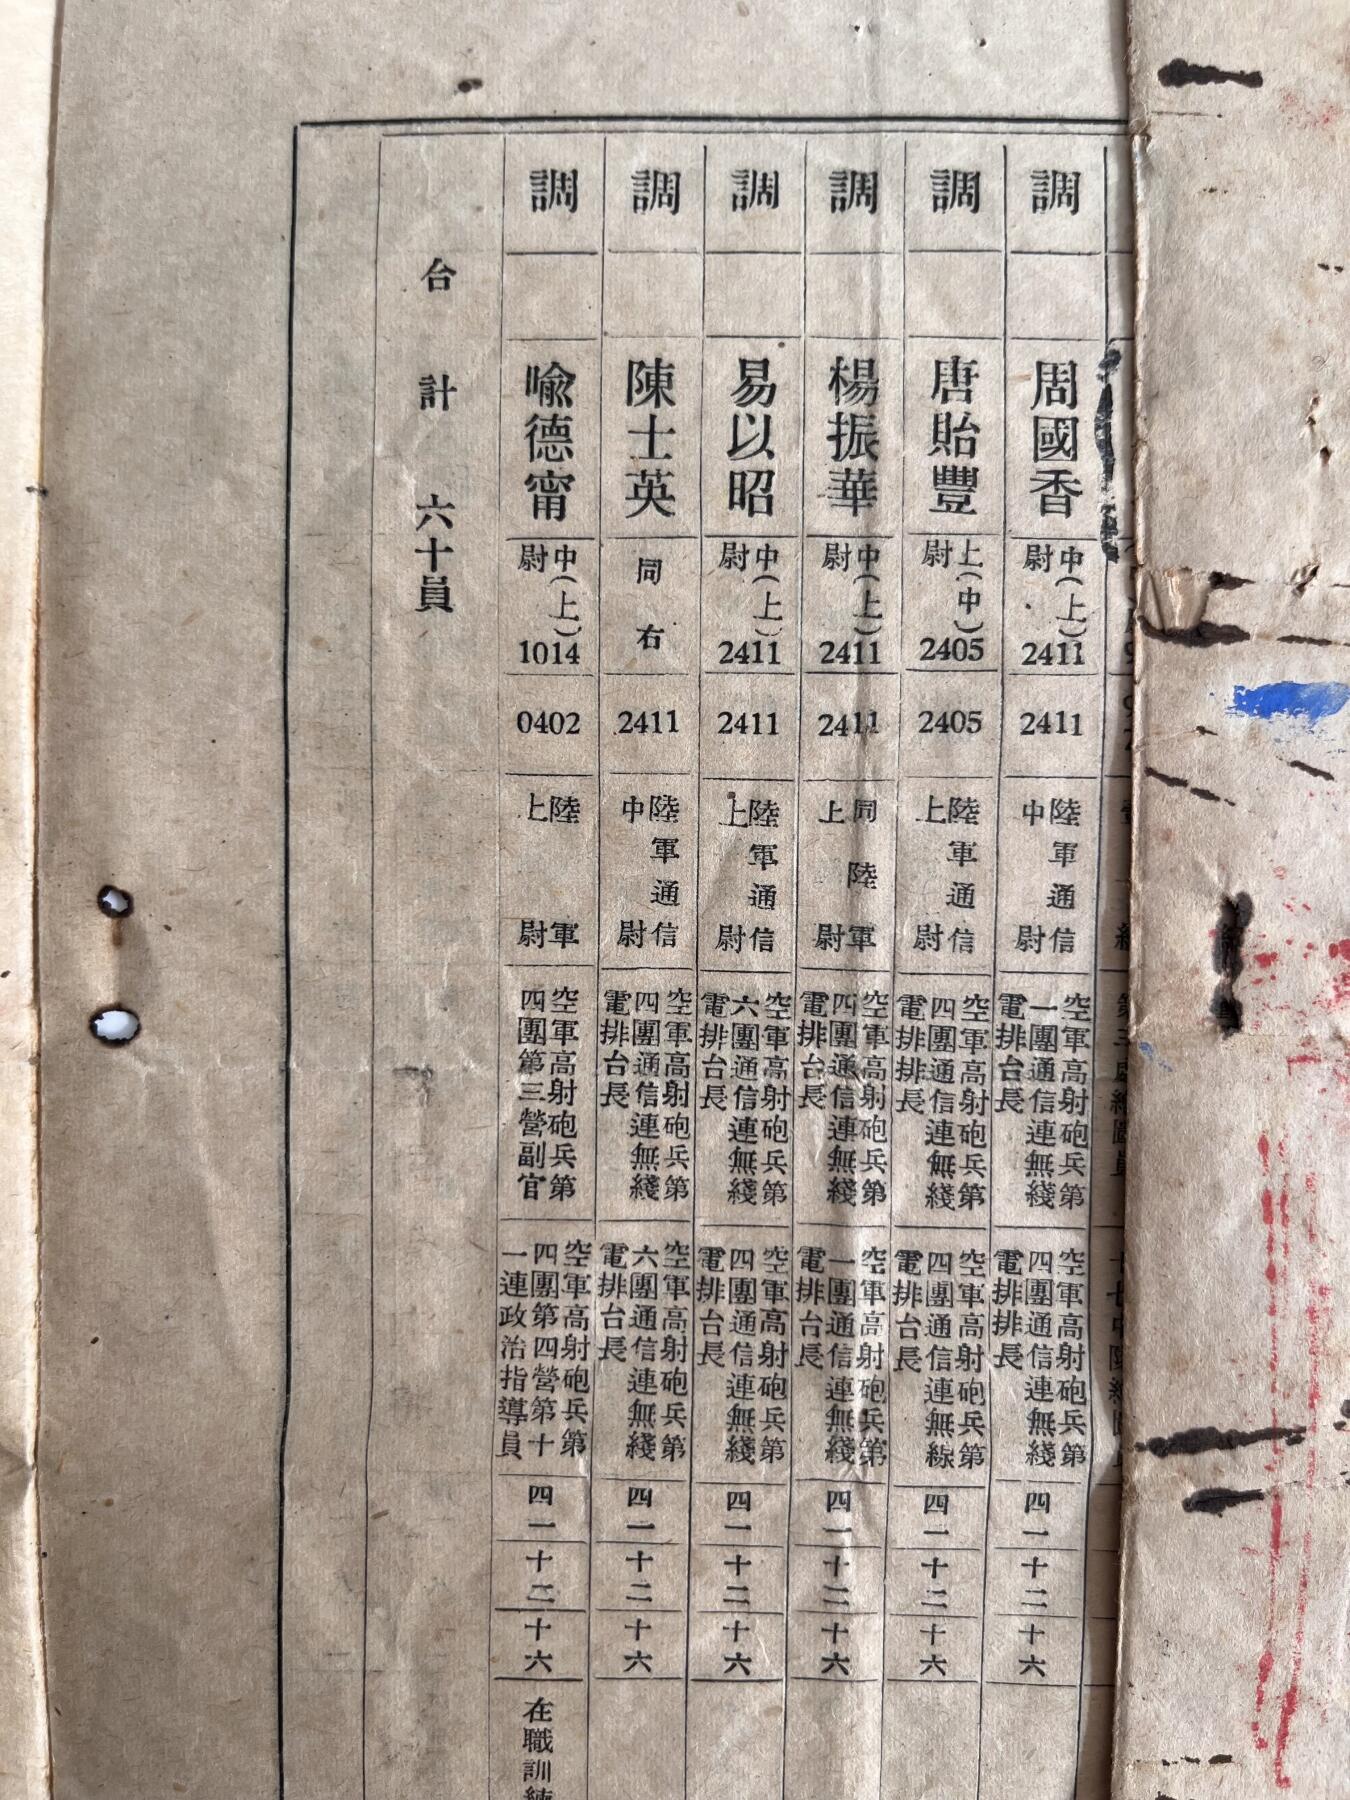 調 周國香 中(上)尉 2411 2411 陸軍通信中尉 空軍高射砲兵第一團通信連無綫電排台長 空軍高射砲兵第四團通信連無綫電排排長 四一 十二 十六
調 唐貽豐 上(中)尉 2405 2405 陸軍通信上尉 空軍高射砲兵第四團通信連無綫電排排長 空軍高射砲兵第四團通信連無線電排台長 四一 十二 十六
調 楊振華 中(上)尉 2411 2411 同陸軍上尉 空軍高射砲兵第四團通信連無綫電排台長 空軍高射砲兵第一團通信連無綫電排台長 四一 十二 十六
調 易以昭 中(上)尉 2411 2411 陸軍通信上尉 空軍高射砲兵第六團通信連無綫電排台長 空軍高射砲兵第四團通信連無綫電排台長 四一 十二 十六
調 陳士英 同右 2411 陸軍通信中尉 空軍高射砲兵第四團通信連無綫電排台長 空軍高射砲兵第六團通信連無綫電排台長 四一 十二 十六
調 喩德甯 中(上)尉 1014 0402 陸軍上尉 空軍高射砲兵第四團第三營副官 空軍高射砲兵第四團第四營第十一連政治指導員 四一 十二 十六 在職訓練
台計 六十員